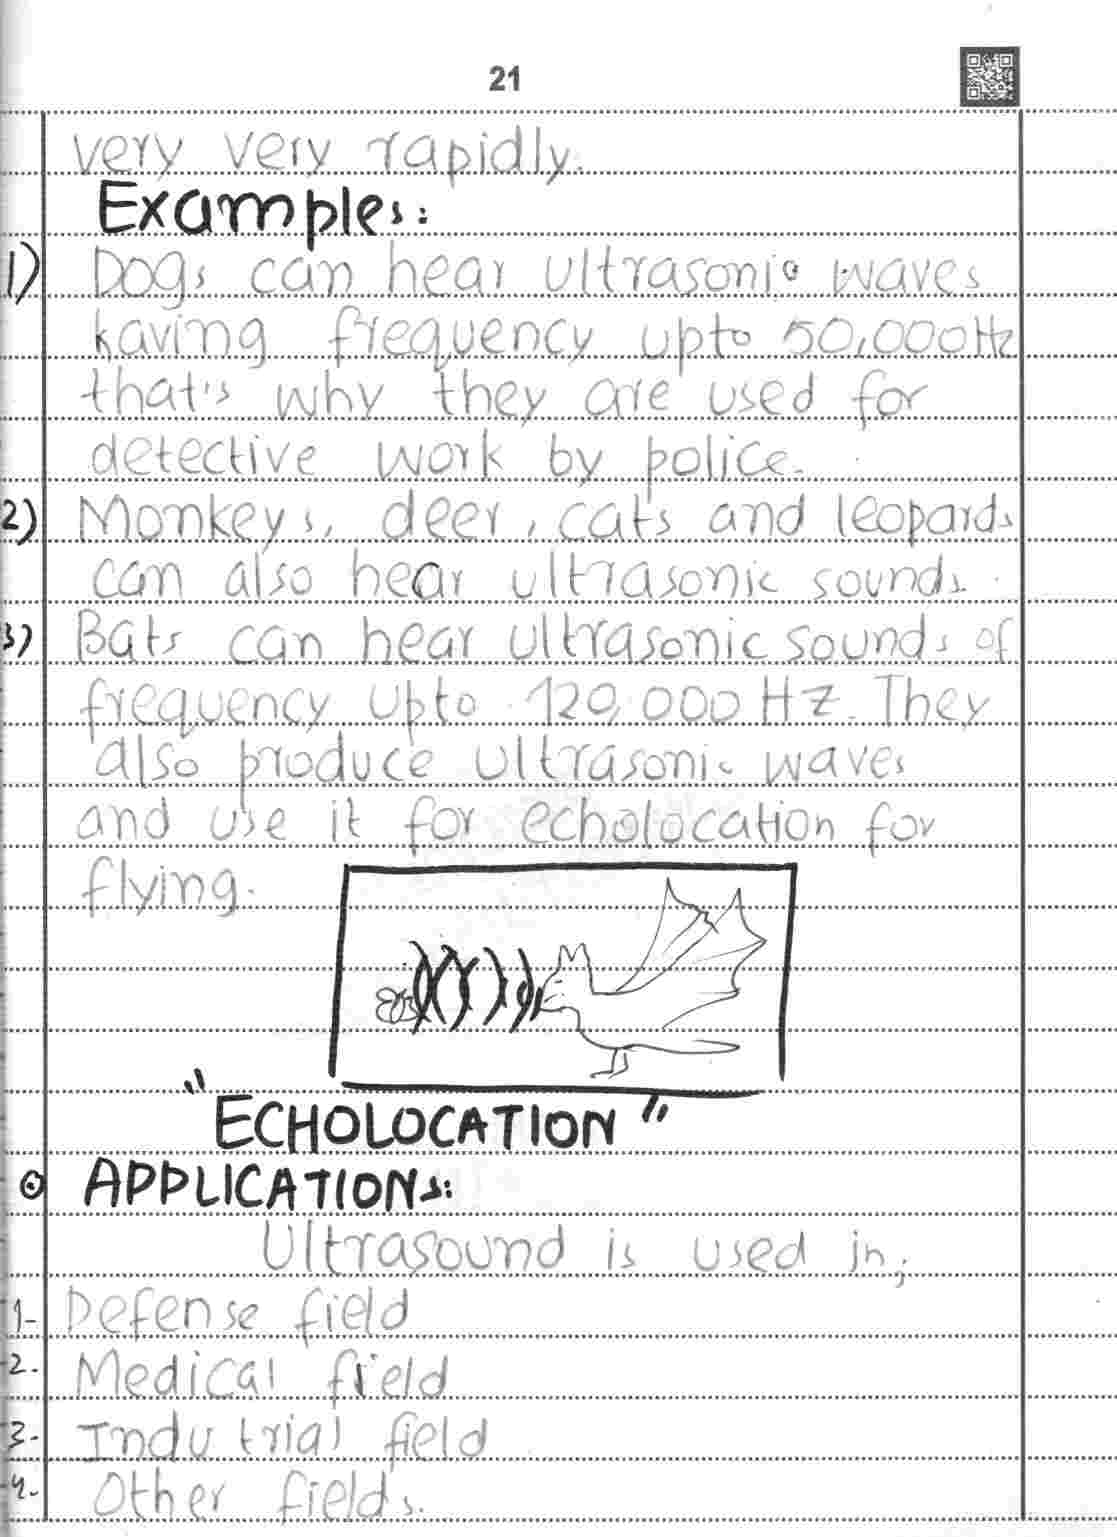 21
very very rapidly.
Examples:
1) Dogs can hear ultrasonic waves
having frequency upto 50,000Hz
that's why they are used for
detective work by police.
2) Monkeys, deer, cats and leopards
can also hear ultrasonic sounds.
3) Bats can hear ultrasonic sounds of
frequency upto 120,000 HZ. They
also produce ultrasonic waves
and use it for echolocation for
flying.
"ECHOLOCATION"
APPLICATIONs:
Ultrasound is used in;
1- Defense field
2. Medical field
3- Indutrial field
4- Other fields.